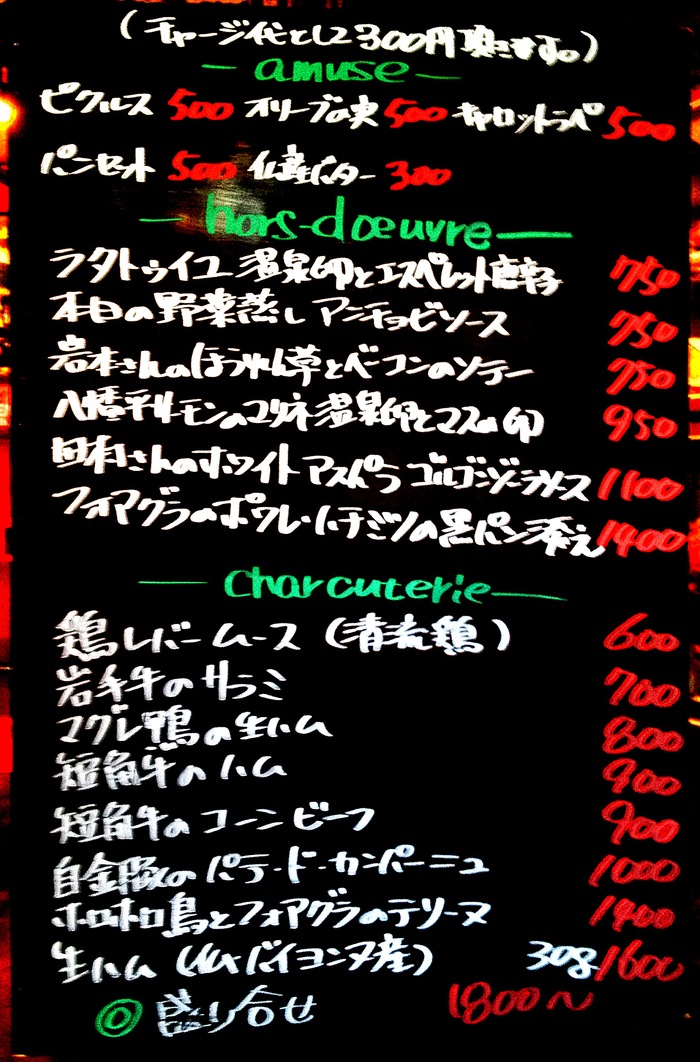 (チャージ代として300円頂きます。)
amuse
ピクルス 500 オリーブの実 500 キャロットラペ 500
パンセット 500 仏産バター 300
hors-dœuvre
ラタトゥイユ 温泉卵とエスペレット唐辛子 750
本日の野菜蒸し アンチョビソース 750
岩本さんのほうれん草とベーコンのソテー 750
八幡平サーモンのマリネ 温泉卵とマスの卵 950
田村さんのホワイトアスパラ ゴルゴンゾーラソース 1100
フォアグラのポワレ・ハチミツの黒パン添え 1400
charcuterie
鶏レバームース (青流鶏) 600
岩手牛のサラミ 700
マグレ鴨の生ハム 800
短角牛のハム 900
短角牛のコーンビーフ 900
白金豚のパテ・ド・カンパーニュ 1000
ホロホロ鳥とフォアグラのテリーヌ 1400
生ハム (仏バイヨンヌ産) 30g 1600
◎ 盛り合せ 1800〜